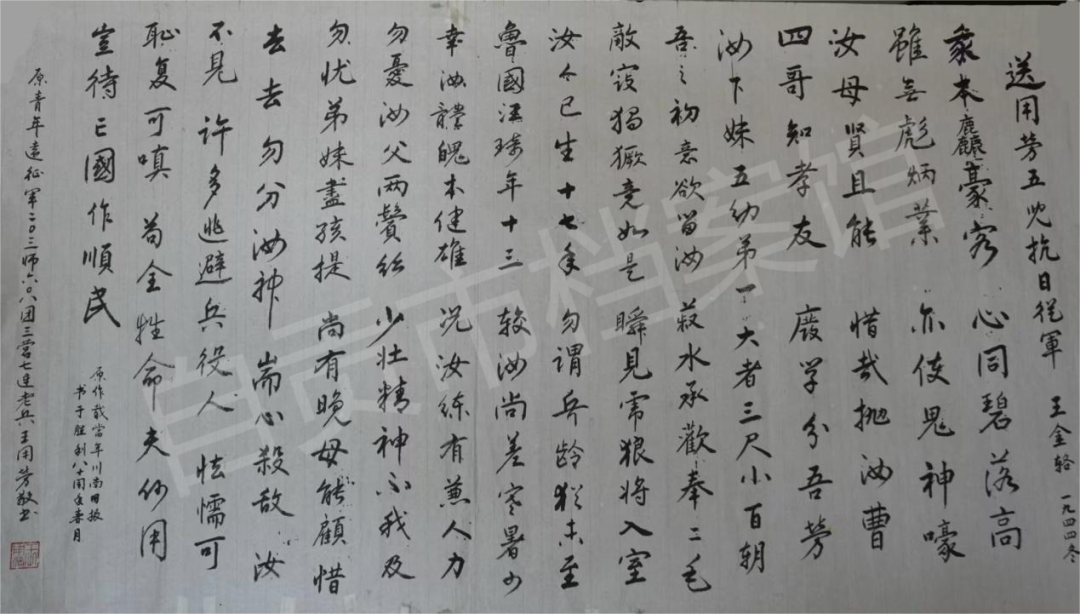 送用芳五兒抗日從軍 王金輅 一九四四冬
本麤豪客 心同碧落高
雖無彪炳業 亦使鬼神嚎
汝母賢且能 惜哉抛汝曹
四哥知孝友 廢学分吾劳
汝下妹五幼弟一 大者三尺小百朝
吾之初意欲留汝 菽水承歡奉二毛
敵寇猖獗竟如是 瞬見虎狼將入室
汝今已生十七年 勿謂兵龄犹未至
魯國汪琦年十三 較汝尚差寒暑
幸汝體魄本健雄 况汝練有兼人力
勿憂汝父两鬢丝 少壮精神不我及
勿忧弟妹盡孩提 尚有晚母能顧惜
去去勿分汝神 耑心殺敵 汝
不見 许多逃避兵役人 怯懦可
恥复可嗔 苟全性命夫何用
豈待亡國作順民
原作载當年川南日报
书于胜利周年春月
原青年遠征軍二〇三师六〇八团三营七连老兵王用芳敬书
自贡市档案馆